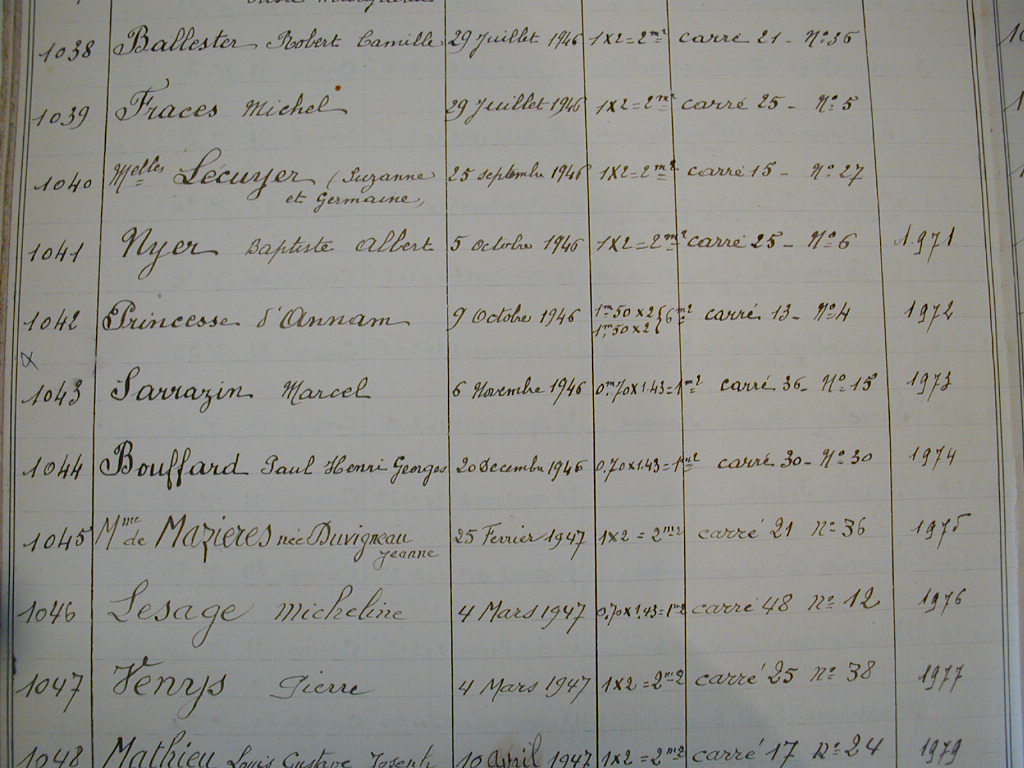 1038 Ballester Robert Camille 29 Juillet 1946 1x2=2m² carré 21 - N° 35
1039 Fraces Michel 29 Juillet 1946 1x2=2m² carré 25 - N° 5
1040 Melles Lécuyer (Suzanne 25 septembre 1946 1x2=2m² carré 15 - N° 27
et Germaine)
1041 Nyer Baptiste Albert 5 Octobre 1946 1x2=2m² carré 25 - N° 6 1971
1042 Princesse d'Annam 9 Octobre 1946 1m50x2 } 6m² carré 13 - N° 4 1972
1m50x2
1043 Sarrazin Marcel 6 Novembre 1946 0m70x1.43=1m² carré 36 - N° 15 1973
1044 Bouffard Paul Henri Georges 20 Decembre 1946 0.70x1.43=1m² carré 30 - N° 30 1974
1045 Mme de Mazieres née Duvigneau 25 Fevrier 1947 1x2=2m² carré 21 n° 36 1975
Jeanne
1046 Lesage Micheline 4 Mars 1947 0.70x1.43=1m² carré 48 n° 12 1976
1047 Venys Pierre 4 Mars 1947 1x2=2m² carré 25 n° 38 1977
1048 Mathieu Louis Gustave Joseph 10 avril 1947 1x2=2m² carré 17 n° 24 1979